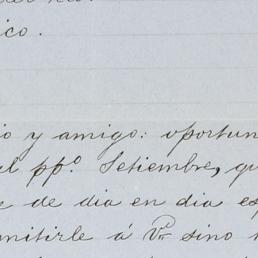 ico.
io y amigo: oportun
al ppº. Setiembre, qu
e de dia en dia esp
mitirle á Vr sino